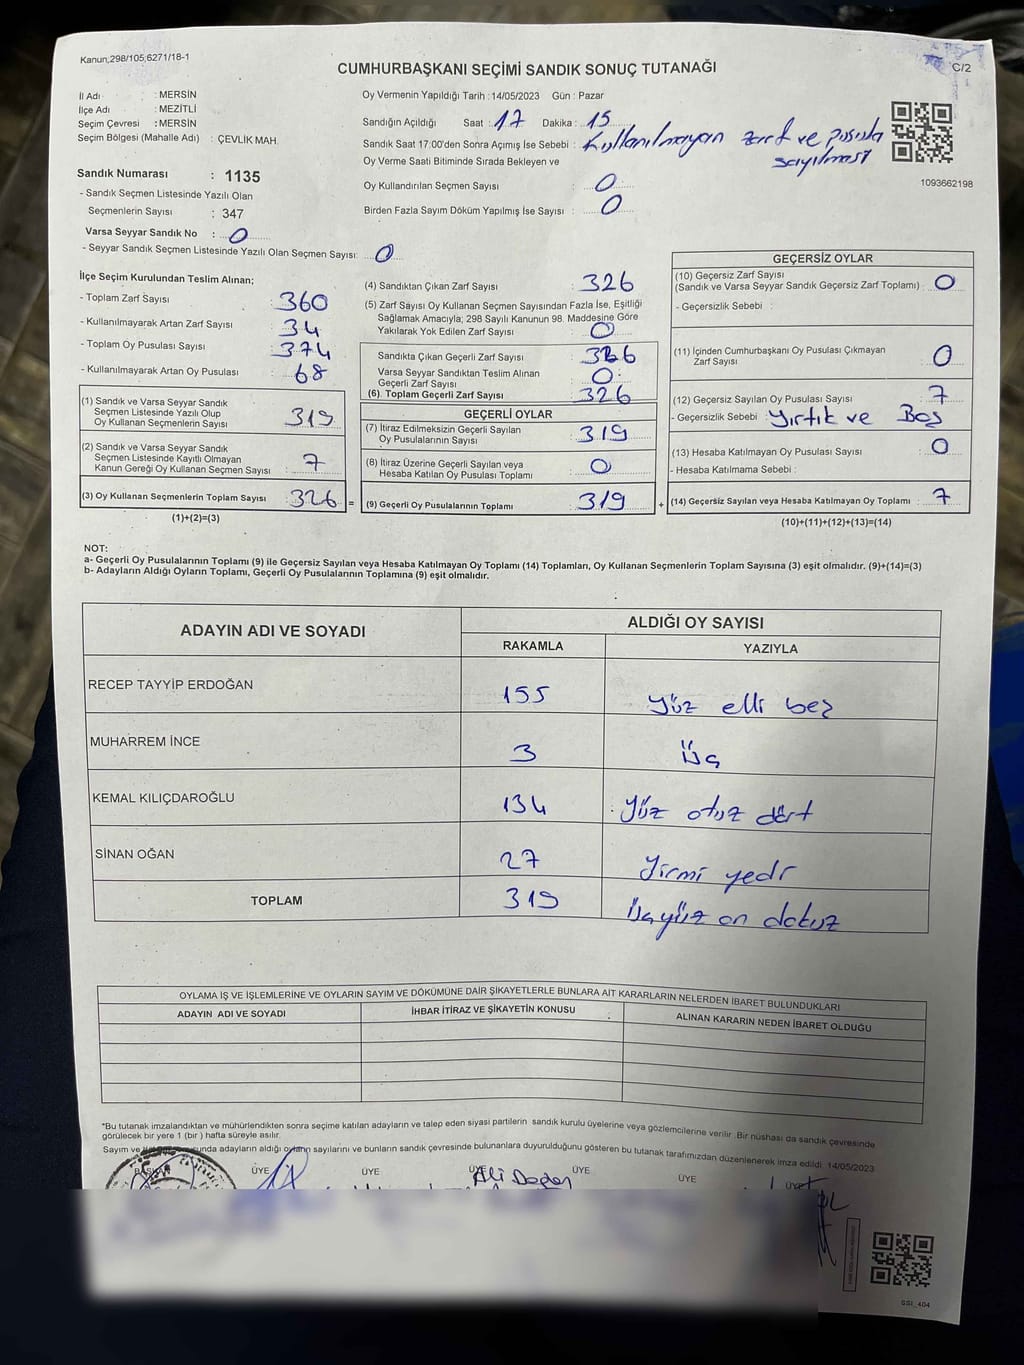 Kanun,298/105,6271/18-1
CUMHURBAŞKANI SEÇİMİ SANDIK SONUÇ TUTANAĞI
C/2
İl Adı : MERSİN
İlçe Adı : MEZİTLİ
Seçim Çevresi : MERSİN
Seçim Bölgesi (Mahalle Adı) : ÇEVLİK MAH.
Oy Vermenin Yapıldığı Tarih : 14/05/2023 Gün : Pazar
Sandığın Açıldığı Saat : 17 Dakika : 15
Sandık Saat 17:00'den Sonra Açımış İse Sebebi : Kullanılmayan zarf ve pusula
sayılması
Oy Verme Saati Bitiminde Sırada Bekleyen ve
Oy Kullandırılan Seçmen Sayısı : 0
Birden Fazla Sayım Döküm Yapılmış İse Sayısı : 0
1093662198
Sandık Numarası : 1135
- Sandık Seçmen Listesinde Yazılı Olan
Seçmenlerin Sayısı : 347
Varsa Seyyar Sandık No : 0
- Seyyar Sandık Seçmen Listesinde Yazılı Olan Seçmen Sayısı: 0
İlçe Seçim Kurulundan Teslim Alınan;
- Toplam Zarf Sayısı : 360
- Kullanılmayarak Artan Zarf Sayısı : 34
- Toplam Oy Pusulası Sayısı : 374
- Kullanılmayarak Artan Oy Pusulası : 68
(1) Sandık ve Varsa Seyyar Sandık
Seçmen Listesinde Yazılı Olup
Oy Kullanan Seçmenlerin Sayısı : 319
(2) Sandık ve Varsa Seyyar Sandık
Seçmen Listesinde Kayıtlı Olmayan
Kanun Gereği Oy Kullanan Seçmen Sayısı : 7
(3) Oy Kullanan Seçmenlerin Toplam Sayısı : 326 =
(1)+(2)=(3)
(4) Sandıktan Çıkan Zarf Sayısı : 326
(5) Zarf Sayısı Oy Kullanan Seçmen Sayısından Fazla İse, Eşitliği
Sağlamak Amacıyla; 298 Sayılı Kanunun 98. Maddesine Göre
Yakılarak Yok Edilen Zarf Sayısı : 0
Sandıkta Çıkan Geçerli Zarf Sayısı : 326
Varsa Seyyar Sandıktan Teslim Alınan
Geçerli Zarf Sayısı : 0
(6). Toplam Geçerli Zarf Sayısı : 326
GEÇERLİ OYLAR
(7) İtiraz Edilmeksizin Geçerli Sayılan
Oy Pusulalarının Sayısı : 319
(8) İtiraz Üzerine Geçerli Sayılan veya
Hesaba Katılan Oy Pusulası Toplamı : 0
(9) Geçerli Oy Pusulalarının Toplamı : 319 +
GEÇERSİZ OYLAR
(10) Geçersiz Zarf Sayısı
(Sandık ve Varsa Seyyar Sandık Geçersiz Zarf Toplamı) : 0
- Geçersizlik Sebebi :
(11) İçinden Cumhurbaşkanı Oy Pusulası Çıkmayan
Zarf Sayısı : 0
(12) Geçersiz Sayılan Oy Pusulası Sayısı : 7
- Geçersizlik Sebebi : Yırtık ve Boş
(13) Hesaba Katılmayan Oy Pusulası Sayısı : 0
- Hesaba Katılmama Sebebi :
(14) Geçersiz Sayılan veya Hesaba Katılmayan Oy Toplamı : 7
(10)+(11)+(12)+(13)=(14)
NOT:
a- Geçerli Oy Pusulalarının Toplamı (9) ile Geçersiz Sayılan veya Hesaba Katılmayan Oy Toplamı (14) Toplamları, Oy Kullanan Seçmenlerin Toplam Sayısına (3) eşit olmalıdır. (9)+(14)=(3)
b- Adayların Aldığı Oyların Toplamı, Geçerli Oy Pusulalarının Toplamına (9) eşit olmalıdır.
ADAYIN ADI VE SOYADI
ALDIĞI OY SAYISI
RAKAMLA YAZIYLA
RECEP TAYYİP ERDOĞAN 155 Yüz elli beş
MUHARREM İNCE 3 Üç
KEMAL KILIÇDAROĞLU 134 Yüz otuz dört
SİNAN OĞAN 27 Yirmi yedi
TOPLAM 319 Üçyüz on dokuz
OYLAMA İŞ VE İŞLEMLERİNE VE OYLARIN SAYIM VE DÖKÜMÜNE DAİR ŞİKAYETLERLE BUNLARA AİT KARARLARIN NELERDEN İBARET BULUNDUKLARI
ADAYIN ADI VE SOYADI İHBAR İTİRAZ VE ŞİKAYETİN KONUSU ALINAN KARARIN NEDEN İBARET OLDUĞU
*Bu tutanak imzalandıktan ve mühürlendikten sonra seçime katılan adayların ve talep eden siyasi partilerin sandık kurulu üyelerine veya gözlemcilerine verilir. Bir nüshası da sandık çevresinde
görülecek bir yere 1 (bir ) hafta süreyle asılır.
Sayım ve sunda adayların aldığı oyların sayılarını ve bunların sandık çevresinde bulunanlara duyurulduğunu gösteren bu tutanak tarafımızdan düzenlenerek imza edildi. 14/05/2023
BAŞKAN ÜYE ÜYE ÜYE ÜYE ÜYE ÜYE
Ali Doğan
SSI_404